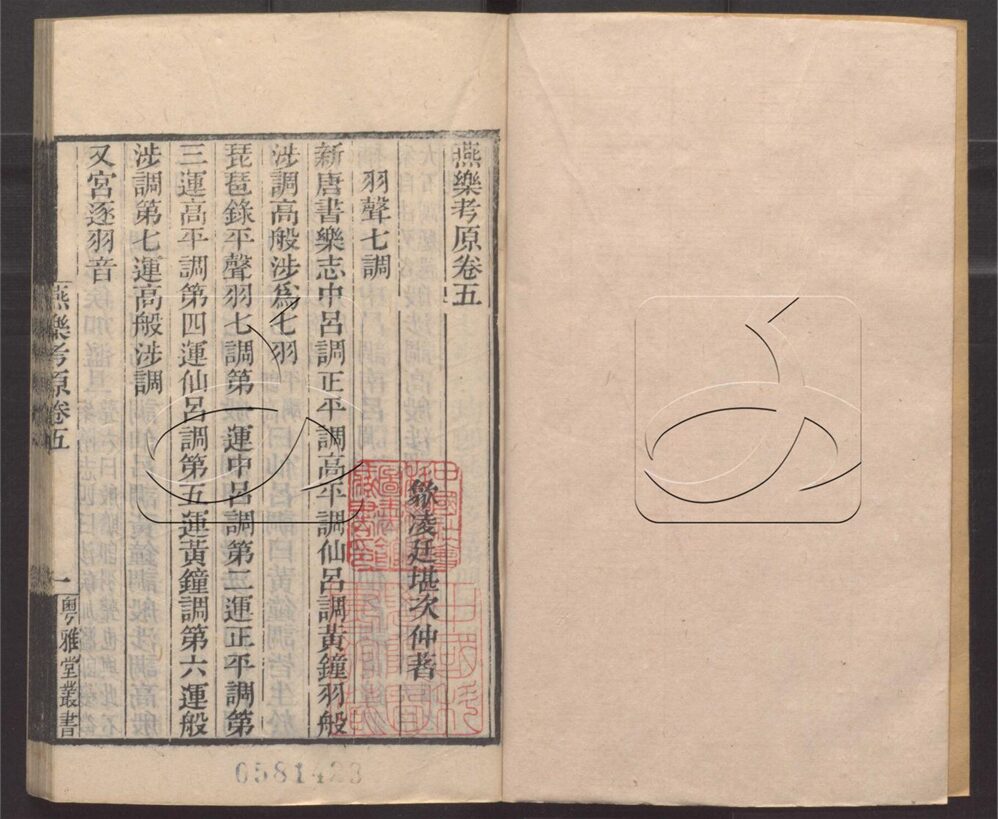 燕樂考原卷五
歙淩廷堪次仲著
羽聲七調
新唐書樂志中呂調正平調高平調仙呂調黃鐘羽般
涉調高般涉爲七羽
琵琶錄平聲羽七調第一運中呂調第二運正平調第
三運高平調第四運仙呂調第五運黃鐘調第六運般
涉調第七運高般涉調
又宮逐羽音
燕樂考原卷五
一
粵雅堂叢書
0581423